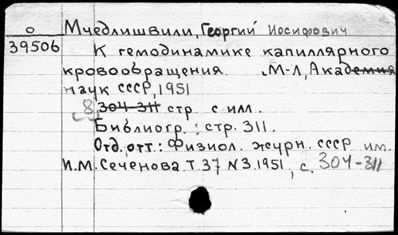 О Мчедлишвили, Георгий Иосифович
39506 К гемодинамике капиллярного
кровообращения. М-Л, Академия
наук СССР, 1951
8, 304-311 стр. с илл.
Библиогр.: стр. 311.
Отд. отт.: Физиол. журн. СССР им.
И.М. Сеченова. Т. 37 N 3. 1951, с. 304-311